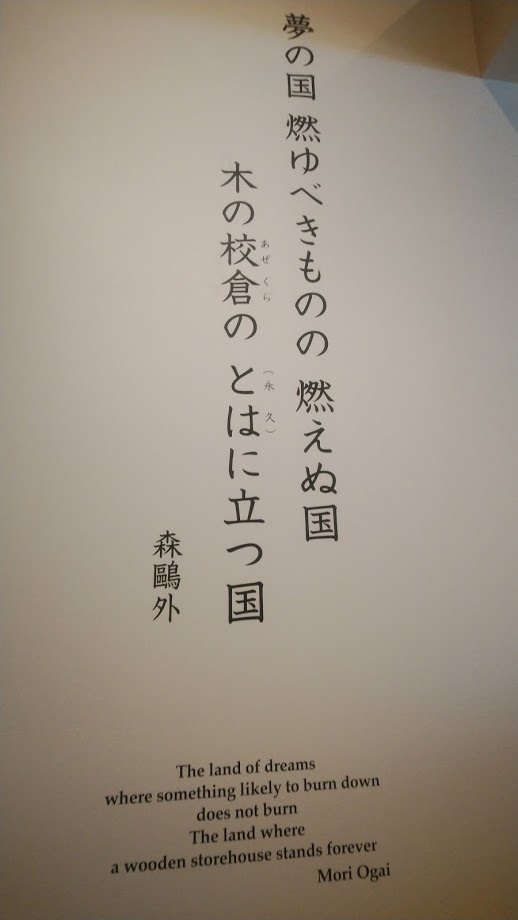 夢の国 燃ゆべきものの 燃えぬ国
木の校倉の とはに立つ国
あぜくら
（永久）
森鷗外
The land of dreams
where something likely to burn down
does not burn
The land where
a wooden storehouse stands forever
Mori Ogai